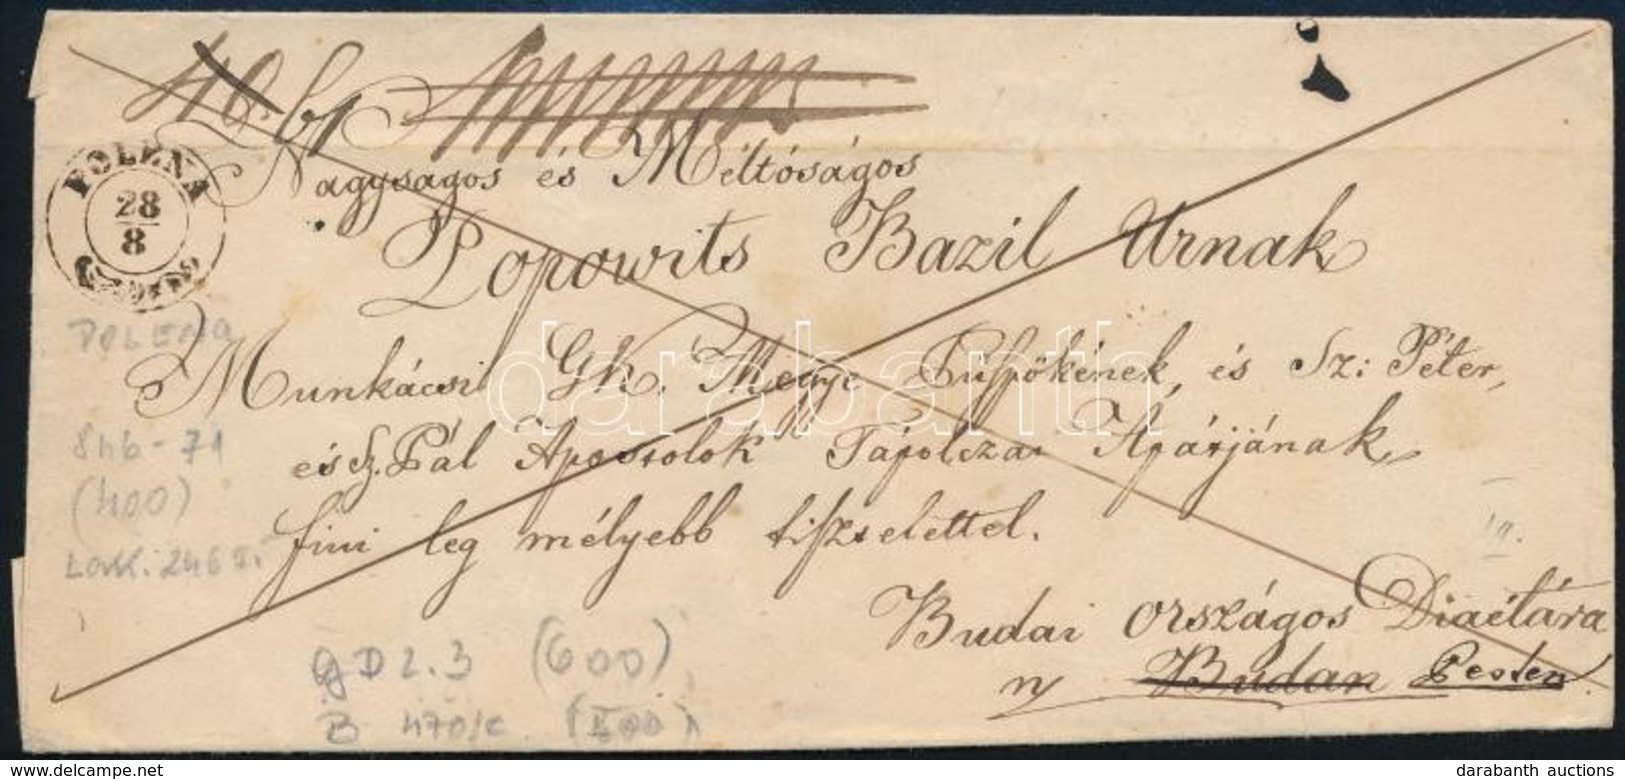 POLENA
28
8
Nagyságos és Méltóságos
Popowits Bazil Urnak
Munkácsi Gk. Megye Püspökének, és Sz: Péter,
és Sz. Pál Apostolok Tapolczai Apátjának
leg mélyebb tisztelettel.
Budai országos Diaetára
Budan Pesten
POLENA
846-71
(400)
(600)
darabanth
darabanth auctions